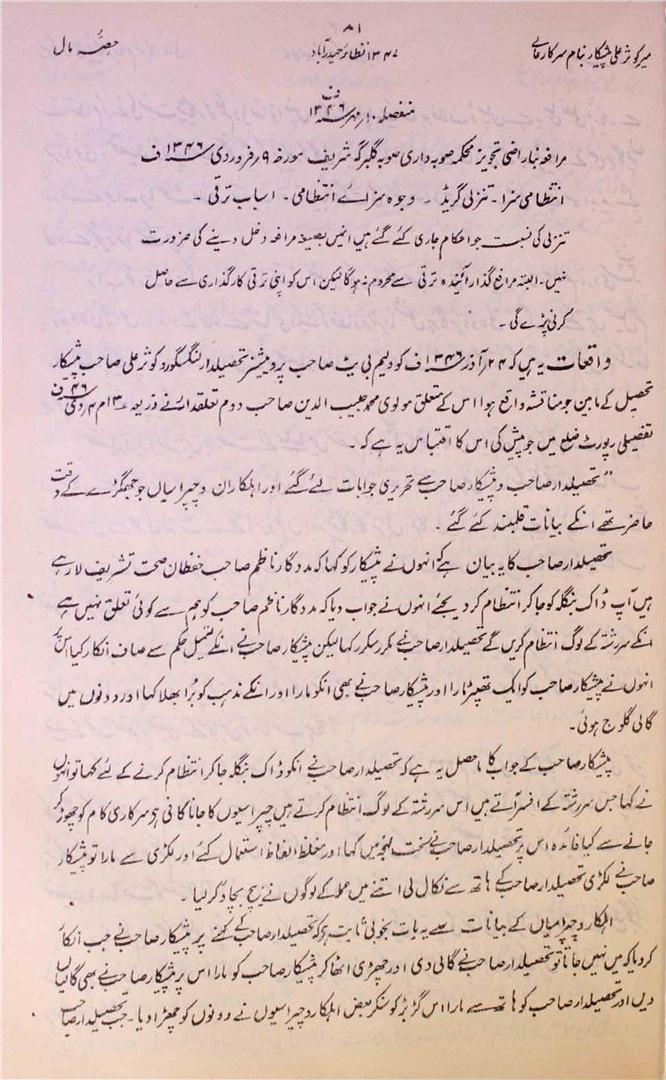 ۸۱
میر کوثر علی پیشکار بنام سرکار عالی ۱۳۴۷ انظائر حیدرآباد حصہ مال
منفصلہ ۱۰ مہر سنہ ۱۳۴۶ ف
مرافعہ بناراضی تجویز محکمہ صوبہ داری صوبہ گلبرگہ شریف مورخہ ۹ فروردی سنہ ۱۳۴۶ ف
انتظامی سزا ۔ تنزلی گریڈ ۔ وجوہ سزائے انتظامی ۔ اسباب ترقی ۔
تنزلی کی نسبت جو احکام جاری کئے گئے ہیں انہیں بصیغہ مرافعہ دخل دینے کی ضرورت
نہیں ۔ البتہ مرافع گذار آئیندہ ترقی سے محروم نہ ہوگا لیکن اس کو اپنی ترقی کارگذاری سے حاصل
کرنی پڑے گی ۔
واقعات یہ ہیں کہ ۲۴ آذر سنہ ۱۳۴۶ ف کو ولیم پی بیٹ صاحب پروبیشنر تحصیلدار لنگسگور و کوثر علی صاحب پیشکار
تحصیل کے مابین جو مناقشہ واقع ہوا اس کے متعلق مولوی محمد حبیب الدین صاحب دوم تعلقدار نے ذریعہ م ۴ دی سنہ ۴۶ ف
تفصیلی رپورٹ ضلع میں جو پیش کی اس کا اقتباس یہ ہے کہ ۔
"تحصیلدار صاحب و پیشکار صاحب سے تحریری جوابات لئے گئے اور اہلکاران و چپراسیاں جو جھگڑے کے وقت
حاضر تھے انکے بیانات قلمبند کئے گئے ۔
تحصیلدار صاحب کا یہ بیان ہے کہ انہوں نے پیشکار کو کہا کہ مددگار ناظم صاحب حفظان صحت تشریف لا رہے
ہیں آپ ڈاک بنگلہ کو جا کر انتظام کر دیجئے انہوں نے جواب دیا کہ مددگار ناظم صاحب کو ہم سے کوئی تعلق نہیں ہے
انکے سررشتہ کے لوگ انتظام کریں گے تحصیلدار صاحب نے مکرر سکرر کہا لیکن پیشکار صاحب نے انکے تعمیل حکم سے صاف انکار کیا اس پر
انہوں نے پیشکار صاحب کو ایک تھپڑ مارا اور پیشکار صاحب نے بھی انکو مارا اور انکے مذہب کو برا بھلا کہا اور دونوں میں
گالی گلوج ہوئی ۔
پیشکار صاحب کے جواب کا ماحصل یہ ہے کہ تحصیلدار صاحب نے انکو ڈاک بنگلہ جا کر انتظام کرنے کے لئے کہا تو انہوں
نے کہا جس سررشتہ کے افسر آتے ہیں اس سررشتہ کے لوگ انتظام کرتے ہیں چپراسیوں کا جانا کافی ہے سرکاری کام کو چھوڑ کر
جانے سے کیا فائدہ اس پر تحصیلدار صاحب نے سخت لہجہ میں کہا اور مغلظ الفاظ استعمال کئے اور لکڑی سے مارا تو پیشکار
صاحب نے لکڑی تحصیلدار صاحب کے ہاتھ سے نکال لی اتنے میں عملہ کے لوگوں نے بیچ بچاؤ کر لیا ۔
اہلکار و چپراسیاں کے بیانات سے یہ بات بخوبی ثابت ہے کہ تحصیلدار صاحب کے کہنے پر پیشکار صاحب نے جب انکار
کر دیا کہ میں نہیں جاتا تو تحصیلدار صاحب نے گالی دی اور چھڑی اٹھا کر پیشکار صاحب کو مارا اس پر پیشکار صاحب نے بھی گالیاں
دیں اور تحصیلدار صاحب کو ہاتھ سے مارا اس گڑبڑ کو سنکر بعض اہلکار و چپراسیوں نے دونوں کو چھڑا دیا ۔ جب تحصیلدار صاحب